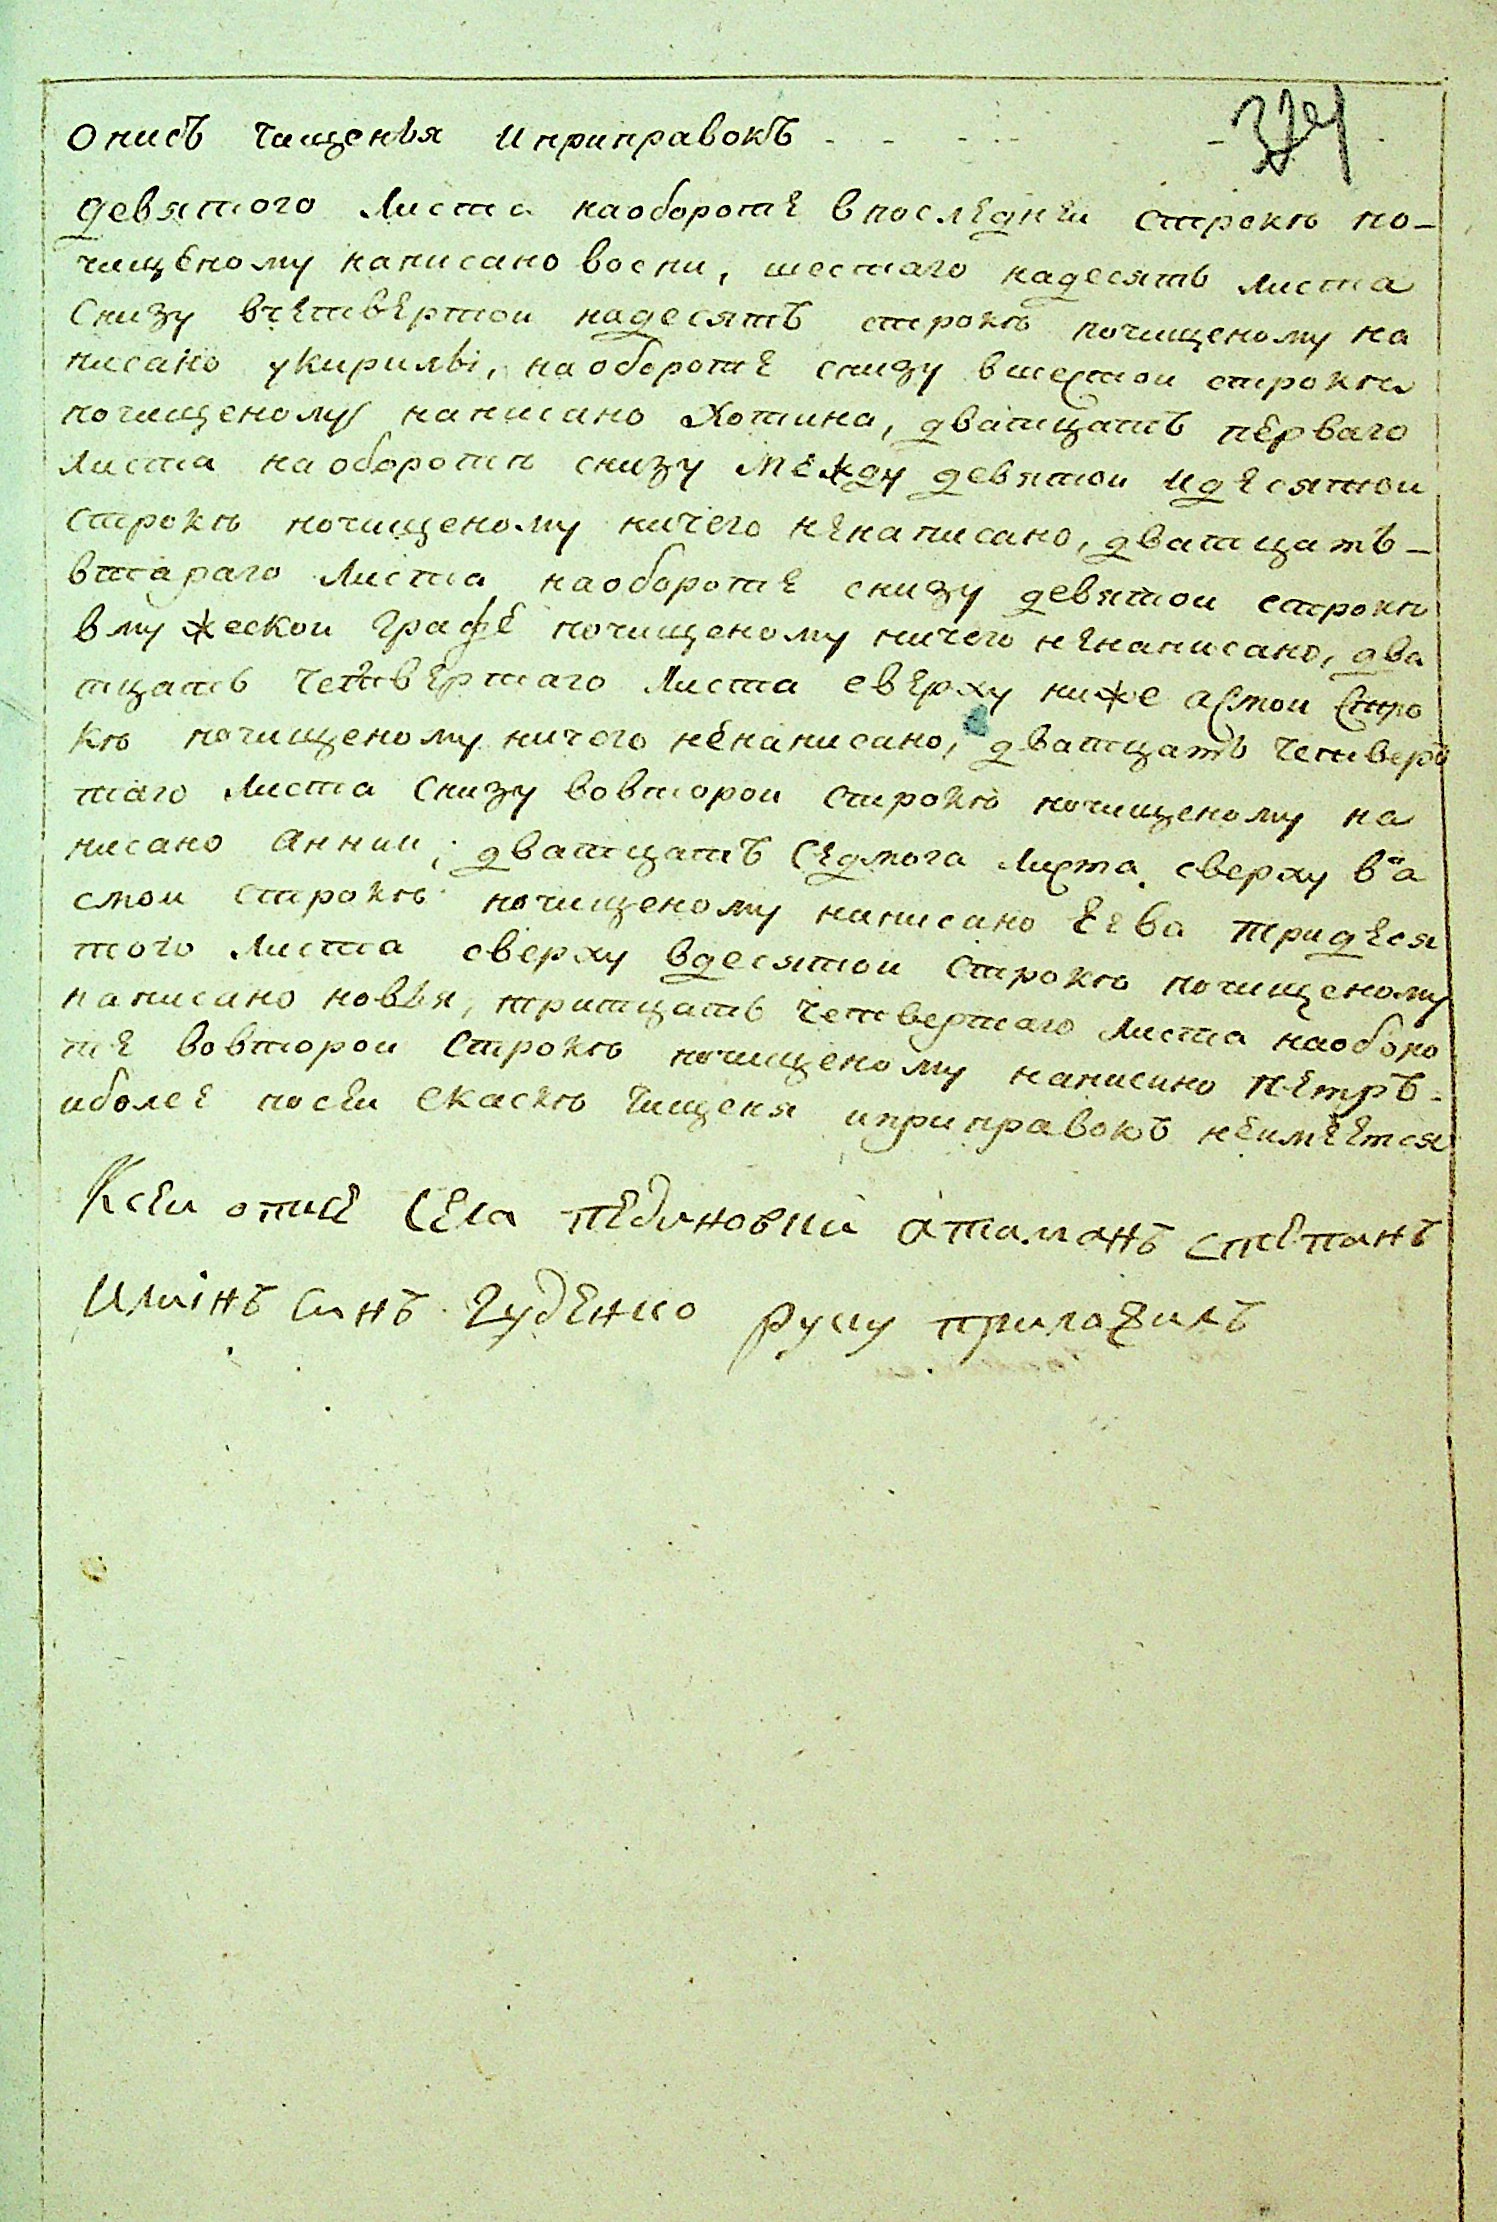 описъ чищенья и приправокъ
374
девятого листа наоборотѣ впоследнеи строкѣ по-
чищеному написано воспи, шестаго надесять листа
снизу вчетвертои надесять строкѣ почищеному на
писано укирилы, наоборотѣ снизу вшестои строкѣ
почищеному написано хотина, дватцать перваго
листа наоборотѣ снизу между девятои идесятои
строкѣ почищеному ничего ненаписано, дватцать-
втараго листа наоборотѣ снизу девятои строкѣ
вмужескои графе почищеному ничего ненаписано, два
тцать четвертаго листа сверху ниже асмои стро
кѣ почищеному ничего ненаписано, дватцать четвер
таго листа снизу вовторои строкѣ почищеному на
писано аннии, дватцать седмога листа сверху в а
смои строкѣ почищеному написано Ева тридеся
того листа сверху вдесятои строкѣ почищеному
написано новья, тритцать четвертаго листа наоборо
те вовторои строкѣ почищеному написано петръ-
иболее посеи скаскѣ чищеня иприправокъ неимеется
Ксеи описе села пединовки атаманъ степанъ
илинъ синъ гуденко руку приложилъ